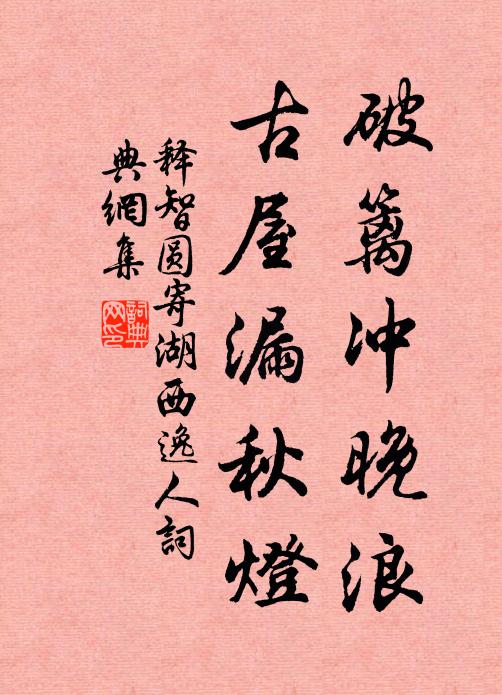 破篱冲晚浪
古屋漏秋燈
释智圆寄湖西逸人詞
典網集
詞典网印